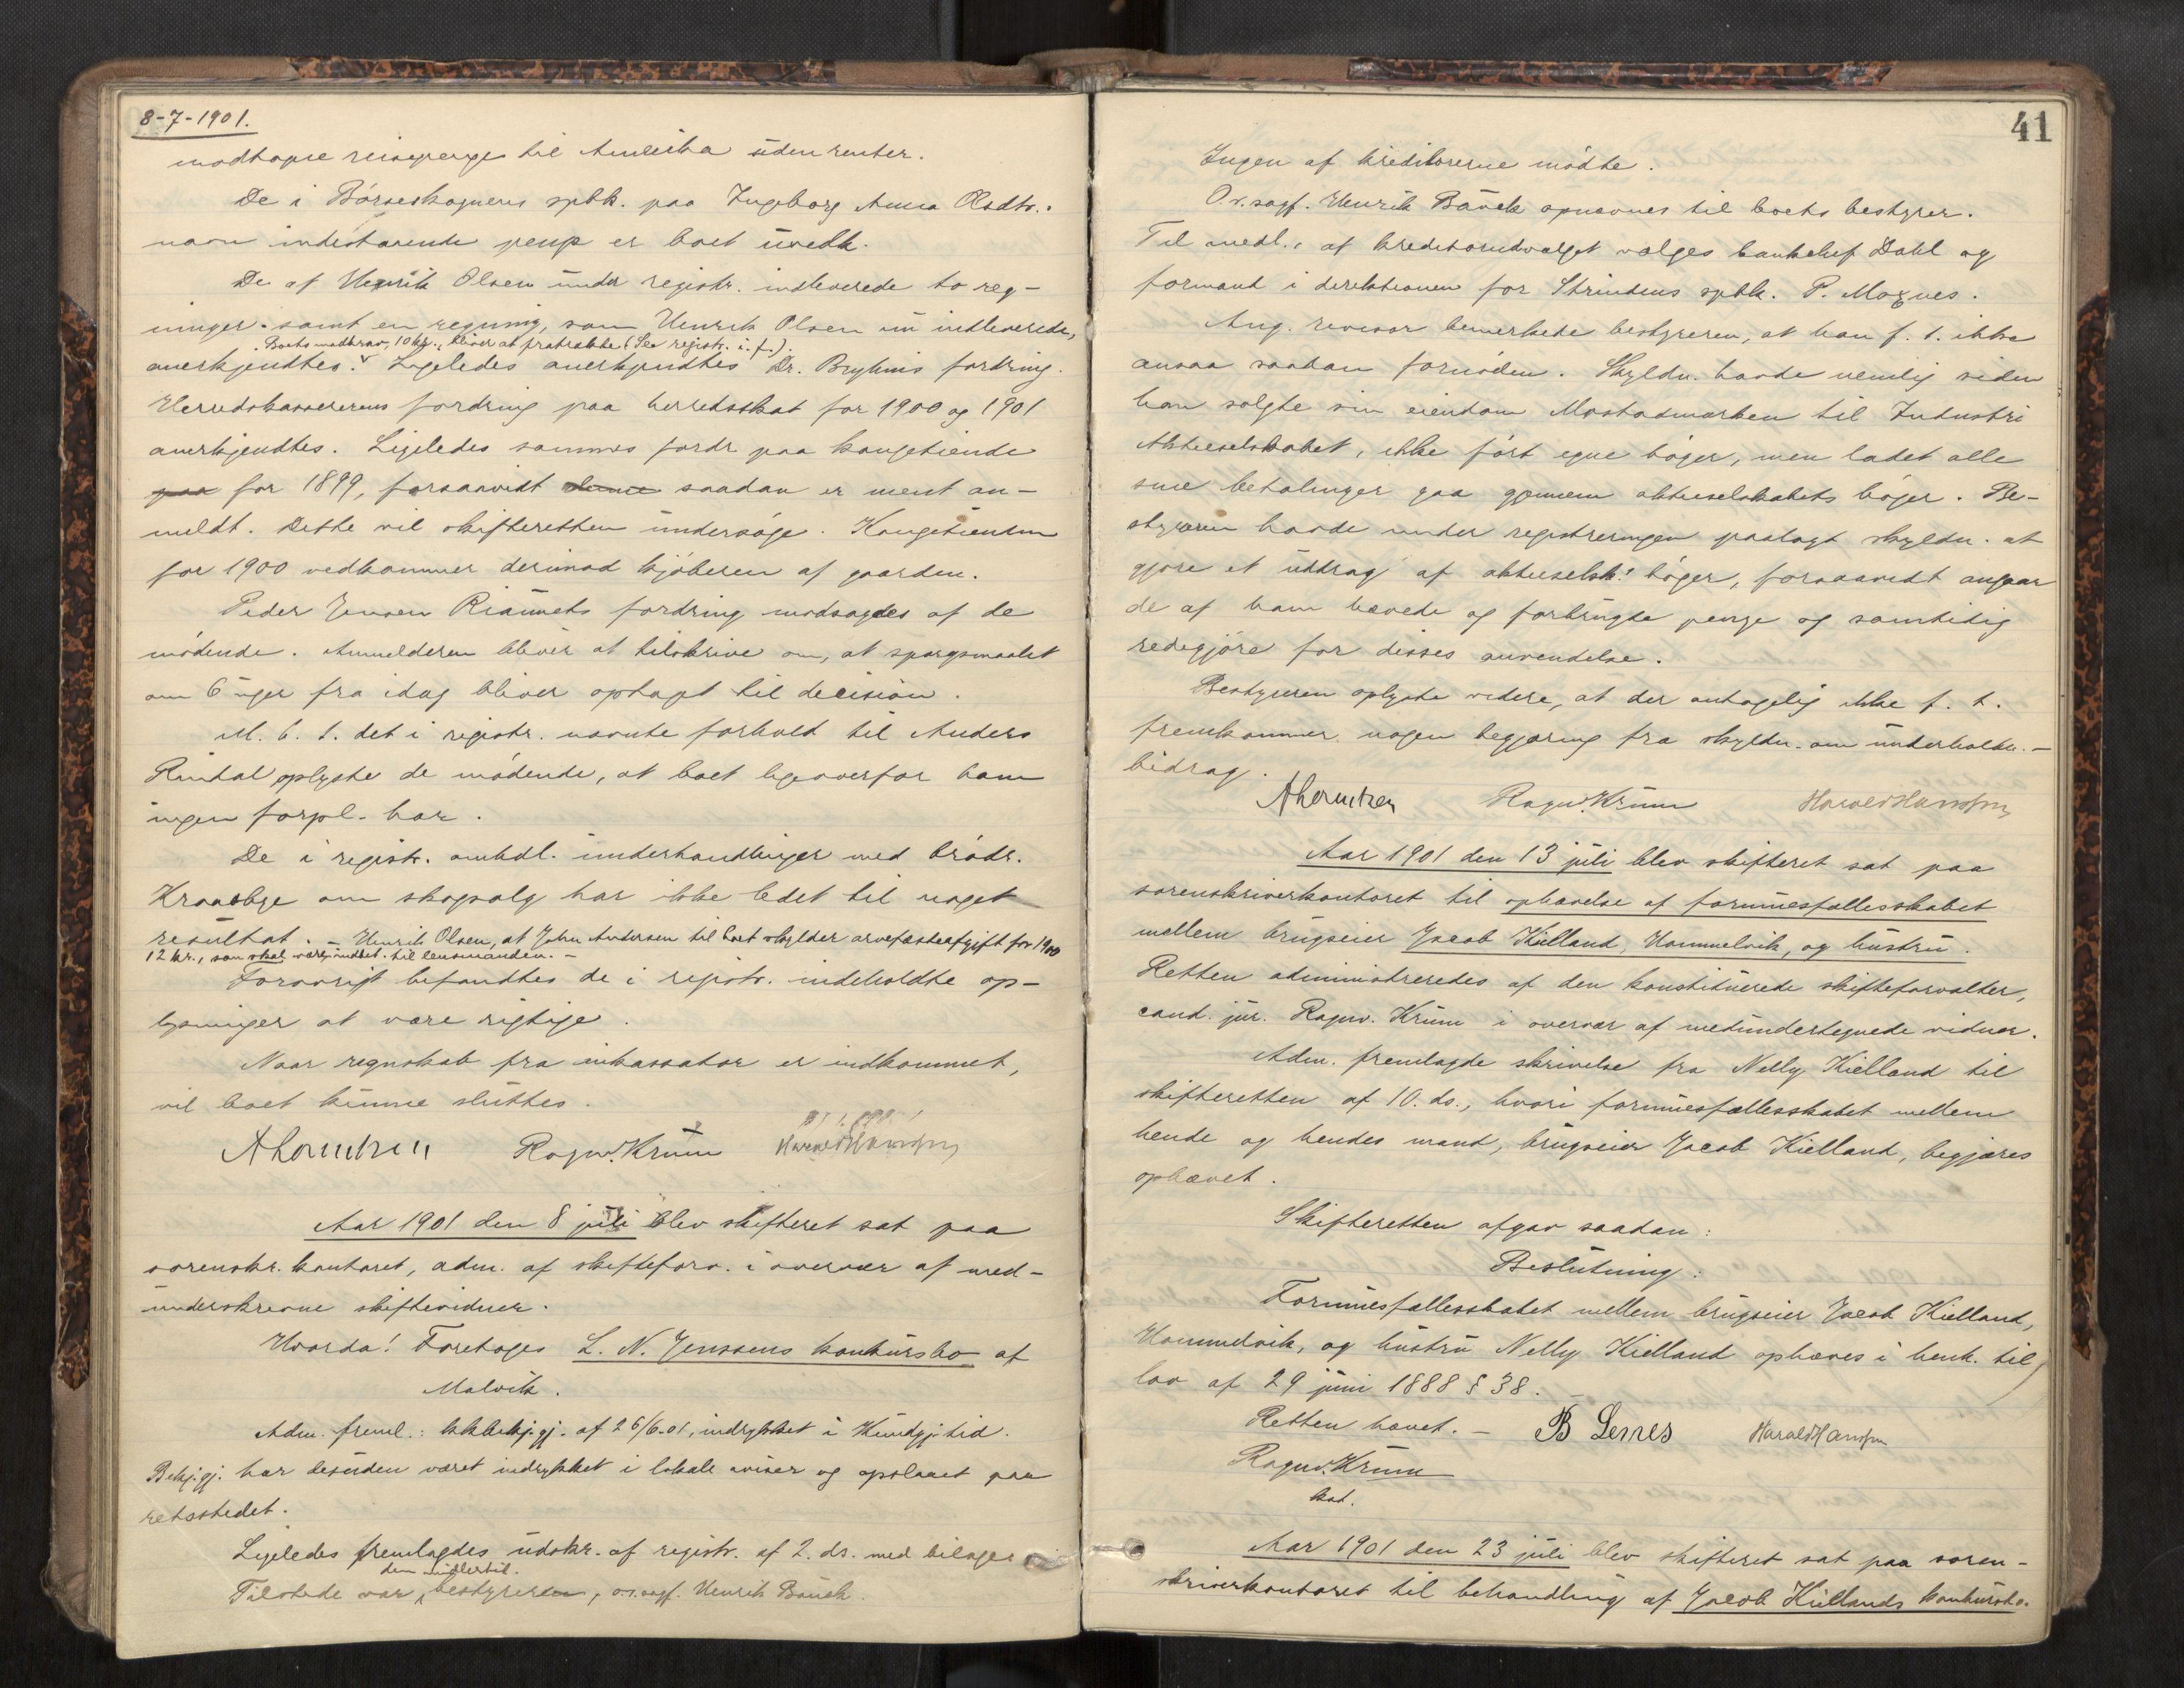 8-7-1901.
modtagne reisepenge til Amerika uden renter.
De i Börseskognens spbk. paa Ingeborg Anna Olsdtr.s
navn indestaaende penge er boet uvedk.
De af Henrik Olsen under registr. indleverede to reg-
ninger samt en regning, som Henrik Olsen nu indleverede,
Boets modkrav, 10 kr., bliver at fratrække (Se registr. i. f.).
anerkjendtes. Ligeledes anerkjendtes Dr. Bryhnis fordring.
Herredskassererens fordring paa herredsskat for 1900 og 1901
anerkjendtes. Ligeledes sammes fordr. paa kongetiende
paa for 1899, forsaavidt denne saadan er ment an-
meldt. Dette vil skifteretten undersøge. Kongetienden
for 1900 vedkommer derimod kjöberen af gaarden.
Peder Jensen Riaunets fordring modsagdes af de
mödende. Anmelderen bliver at tilskrive om, at spørgsmaalet
om 6 uger fra idag bliver optaget til decision.
M. h. t. det i registr. nævnte forhold til Anders
Rindal oplyste de mödende, at boet ligeoverfor ham
ingen forpl. har.
De i registr. omhdl. underhandlinger med brödr.
Kraabye om skogsalg har ikke ledet til noget
resultat. – Henrik Olsen, at John Andersen til boet skylder arvefæsteafgift for 1900
12 kr., som skal være indbet. til lensmanden. –
Forøvrigt befandtes de i registr. indeholdte op-
lysninger at være rigtige.
Naar regnskab fra inkassator er indkommet,
vil boet kunne sluttes.
Ragnv. Krum Harald Hansen
Aar 1901 den 8 juli blev skifteret sat paa
sorenskr. kontoret, adm. af skifteforv. i overvær af med-
underskrevne skiftevidner.
Hvorda! Foretoges L. N. Jenssens konkursbo af
Malvik.
Adm. freml.: kkbekj.gj. af 26/6-01, indrykket i Kundgj.tid.
Bekj.gj. har desuden været indrykket i lokale aviser og opslaaet paa
retsstedet.
Ligeledes fremlagdes udskr. af registr. af 2. ds. med bilager
den midlertid.
Tilstede var bestyreren, o.r.sagf. Henrik Bauck.
41
Ingen af kreditorerne mödte.
O.r.sagf. Henrik Bauck opnævnes til boets bestyrer.
Til medl. af kreditorudvalget valges bankchef Dahl og
formand i direktionen for Strindens spbk. P. Moxnes.
Ang. revisor bemerkede bestyreren, at han f. t. ikke
ansaa saadan fornöden. Skyldn. havde nemlig siden
han solgte sin eiendom Mostadmarken til Industri
Aktieselskabet, ikke fört egne böger, men ladet alle
sine betalinger gaa gjennem aktieselskabets böger. Be-
styreren havde under registreringen paalagt skyldn. at
gjøre et uddrag af aktieselsk.s böger, forsaavidt angaar
de af ham hævede og forbrugte penge og samtidig
redegjöre for disses anvendelse.
Bestyreren oplyste videre, at der antagelig ikke f. t.
fremkommer nogen begjæring fra skyldn. om underholdn.-
bidrag.
Ragnv. Krum Harald Hansen
Aar 1901 den 13 juli blev skifteret sat paa
sorenskriverkontoret til ophævelse af formuesfællesskabet
mellem brugseier Jacob Kielland, Hommelvik, og hustru.
Retten administreredes af den konstituerede skifteforvalter,
cand. jur. Ragnv. Krum i overvær af medundertegnede vidner.
Adm. fremlagde skrivelse fra Nelly Kielland til
skifteretten af 10. ds., hvori formuesfællesskabet mellem
hende og hendes mand, brugseier Jacob Kielland, begjæres
ophævet.
Skifteretten afgav saadan:
Beslutning:
Formuesfællesskabet mellem brugseier Jacob Kielland,
Hommelvik, og hustru Nelly Kielland ophæves i henh. til
lov af 29 juni 1888 § 38. –
Retten hævet. – B Lenes Harald Hansen
Ragnv. Krum
kst.
Aar 1901 den 23 juli blev skifteret sat paa soren-
skriverkontoret til behandling af Jacob Kiellands konkursbo.